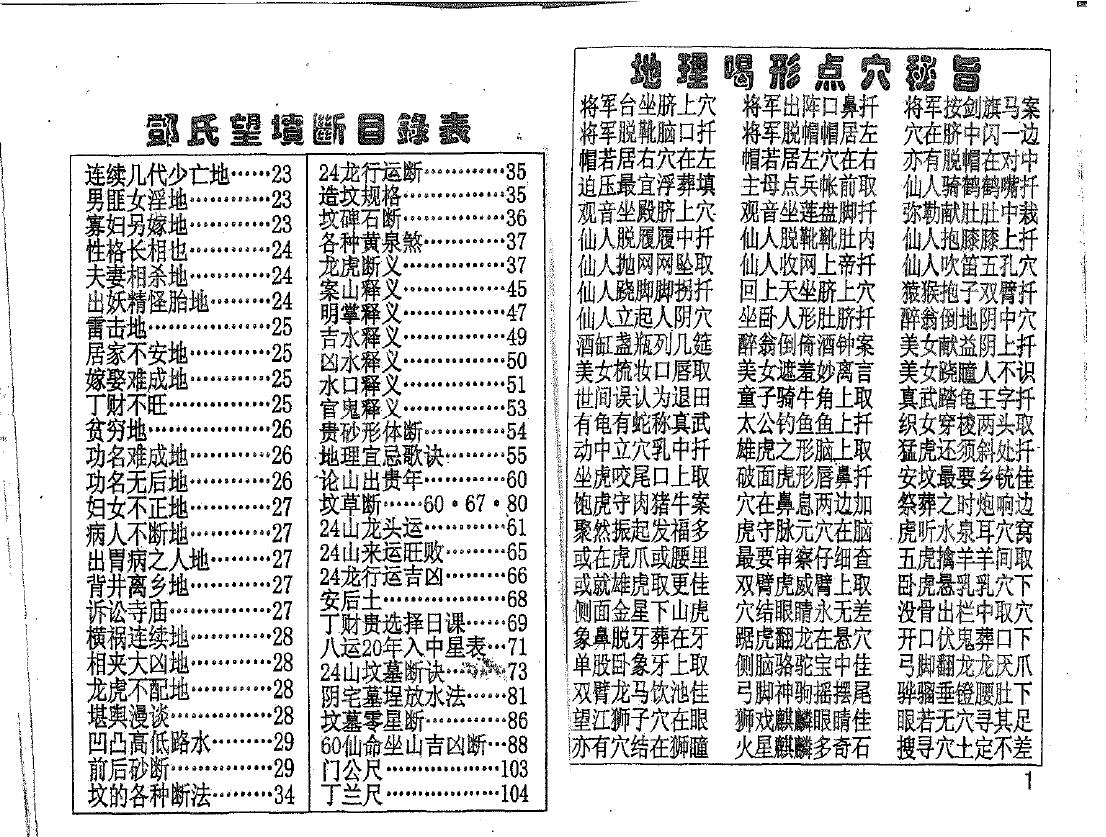 鄧氏望墳斷目錄表
连续几代少亡地……23
男匪女淫地…………23
寡妇另嫁地…………23
性格长相也…………24
夫妻相杀地…………24
出妖精怪胎地………24
雷击地………………25
居家不安地…………25
嫁娶难成地…………25
丁财不旺……………25
贫穷地………………26
功名难成地…………26
功名无后地…………26
妇女不正地…………27
病人不断地…………27
出胃病之人地………27
背井离乡地…………27
诉讼寺庙……………27
横祸连续地…………28
相夹大凶地…………28
龙虎不配地…………28
堪舆漫谈……………28
凹凸高低路水………29
前后砂断……………29
坟的各种断法………34
24龙行运断…………35
造坟规格……………35
坟碑石断……………36
各种黄泉煞…………37
龙虎断义……………37
案山释义……………45
明掌释义……………47
吉水释义……………49
凶水释义……………50
水口释义……………51
官鬼释义……………53
贵砂形体断…………54
地理宜忌歌诀………55
论山出贵年…………60
坟草断……60·67·80
24山龙头运…………61
24山来运旺败………65
24龙行运吉凶………66
安后土………………68
丁财贵选择日课……69
八运20年入中星表…71
24山坟墓断诀………73
阴宅墓埕放水法……81
坟墓零星断…………86
60仙命坐山吉凶断…88
门公尺………………103
丁兰尺………………104
地理喝形点穴秘旨
将军台坐脐上穴 将军出阵口鼻扦 将军按剑旗马案
将军脱靴脑口扦 将军脱帽帽居左 穴在脐中闪一边
帽若居右穴在左 帽若居左穴在右 亦有脱帽在对中
迫压最宜浮葬填 主母点兵帐前取 仙人骑鹤鹤嘴扦
观音坐殿脐上穴 观音坐莲盘脚扦 弥勒献肚肚中栽
仙人脱履履中扦 仙人脱靴靴肚内 仙人抱膝膝上扦
仙人抛网网坠取 仙人收网上帝扦 仙人吹笛五孔穴
仙人跷脚脚拐扦 回上天坐脐上穴 猿猴抱子双臂扦
仙人立起人阴穴 坐卧人形肚脐扦 醉翁倒地阴中穴
酒缸盏瓶列几筵 醉翁倒倚酒钟案 美女献益阴上扦
美女梳妆口唇取 美女遮羞妙离言 美女跷瞳人不识
世间误认为退田 童子骑牛角上取 真武踏龟王字扦
有龟有蛇称真武 太公钓鱼鱼上扦 织女穿梭两头取
动中立穴乳中扦 雄虎之形脑上取 猛虎还须斜处扦
坐虎咬尾口上取 破面虎形唇鼻扦 安坟最要乡铳佳
饱虎守肉猪牛案 穴在鼻息两边加 祭葬之时炮响边
聚然振起发福多 虎守脉元穴在脑 虎听水泉耳穴窝
或在虎爪或腰里 最要审察仔细查 五虎擒羊羊间取
或就雄虎取更佳 双臂虎威臂上取 卧虎悬乳乳穴下
侧面金星下山虎 穴结眼睛永无差 没骨出栏中取穴
象鼻脱牙葬在牙 踞虎翻龙在悬穴 开口伏鬼葬口下
单股卧象牙上取 侧脑骆驼宝中佳 弓脚翻龙龙厌爪
双臂龙马饮池佳 弓脚神驹摇摆尾 骅骝垂镫腰肚下
望江狮子穴在眼 狮戏麒麟眼睛佳 眼若无穴寻其足
亦有穴结在狮瞳 火星麒麟多奇石 搜寻穴土定不差
1